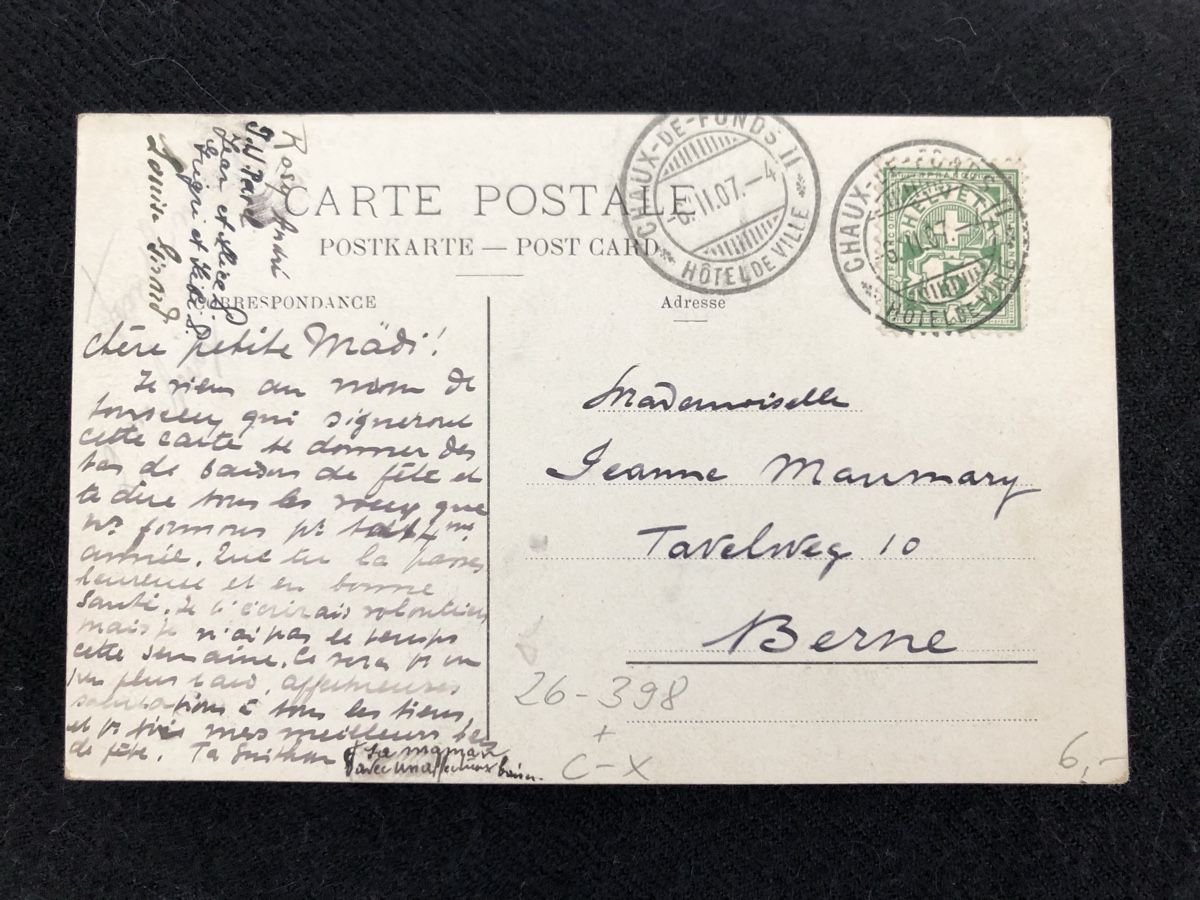 CARTE POSTALE
POSTKARTE — POST CARD
CORRESPONDANCE
Adresse
CHAUX-DE-FONDS II
6.II.07.—4
HÔTEL DE VILLE
CHAUX-DE-FONDS II
HÔTEL DE VILLE
HELVETIA
Rose André
Jean et Alice P
Louise Girard
Chère petite Mädi!
Je viens au nom de
tous ceux qui signeront
cette carte te donner des
tas de baisers de fête et
te dire tous les voeux que
ns formons pr ta 14me
année. Que tu la passes
heureuse et en bonne
santé. Je t'écrirais volontiers
mais je n'ai pas le temps
cette semaine. Ce sera pr un
peu plus tard. Affectueuses
salutations à tous les tiens,
et pr toi mes meilleurs
de fête. Ta
& sa maman
avec un affectueux baiser.
Mademoiselle
Jeanne Maumary
Tavelweg 10
Berne
26-398
+
C-X
6,-